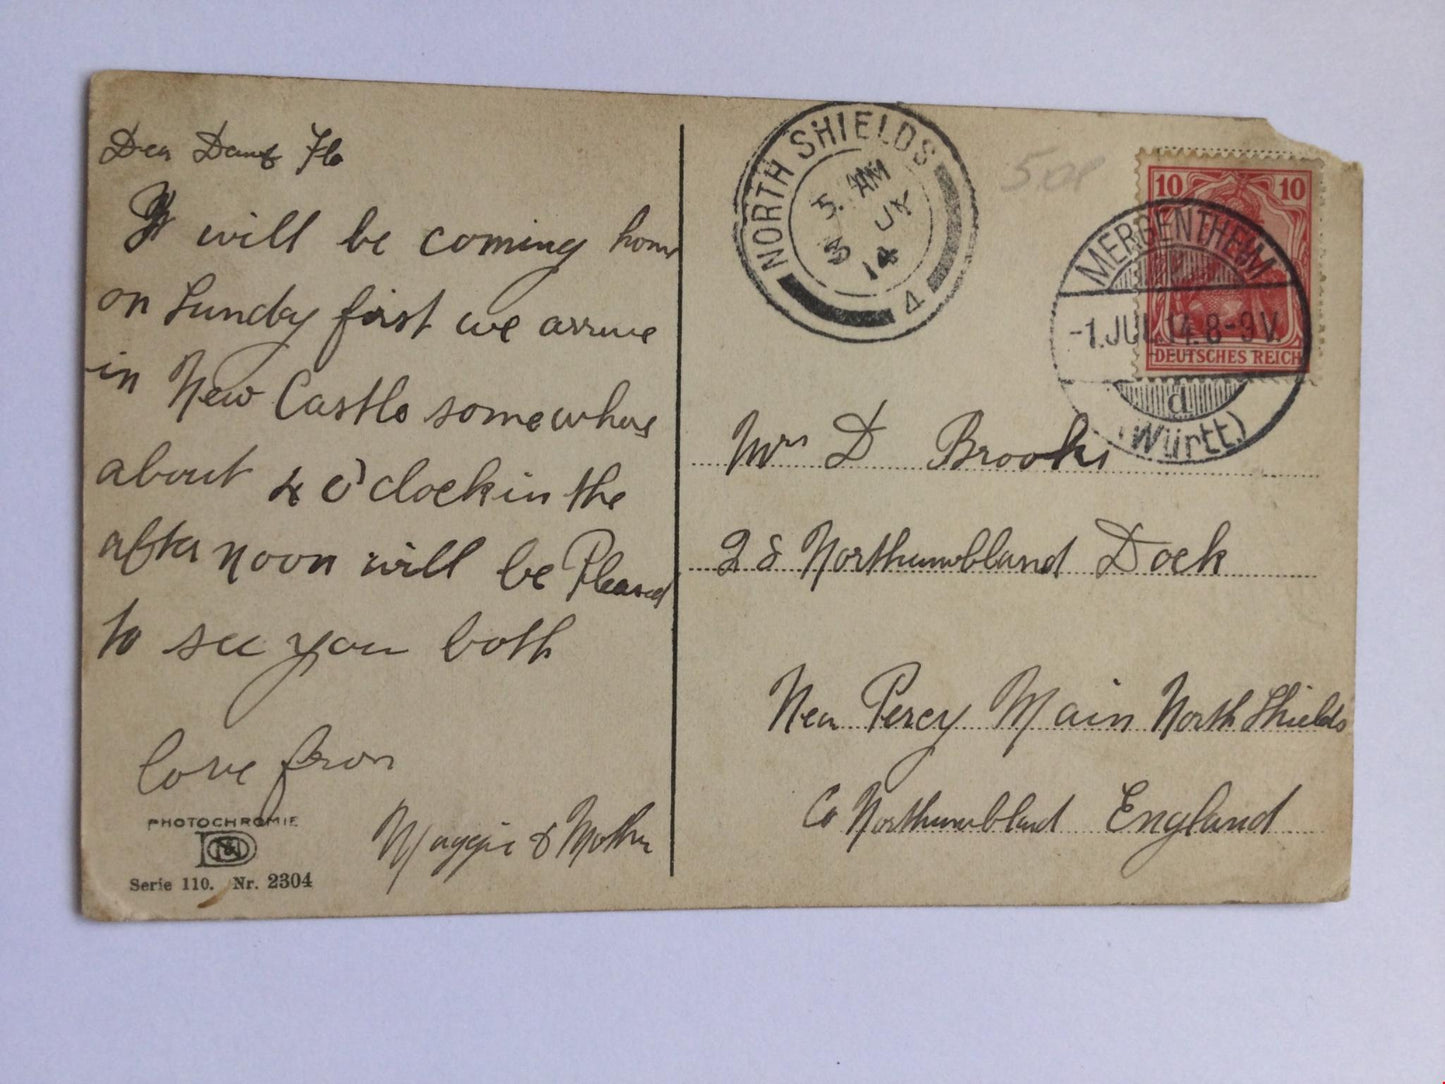 Dear Flo
will be coming home
on Sunday first we arrive
in New Castle somewhere
about 4 o'clock in the
after noon will be Pleased
to see you both
love from
Maggie & Mother
PHOTOCHROMIE
Serie 110. Nr. 2304
NORTH SHIELDS
AM
3 JY
14
4
5.00
10 10
DEUTSCHES REICH
MERGENTHEIM
-1.JUL.14.8-9V.
d
(Württ.)
Mrs D Brooks
28 Northumbland Dock
Near Percy Main North Shields
Co Northumbland England